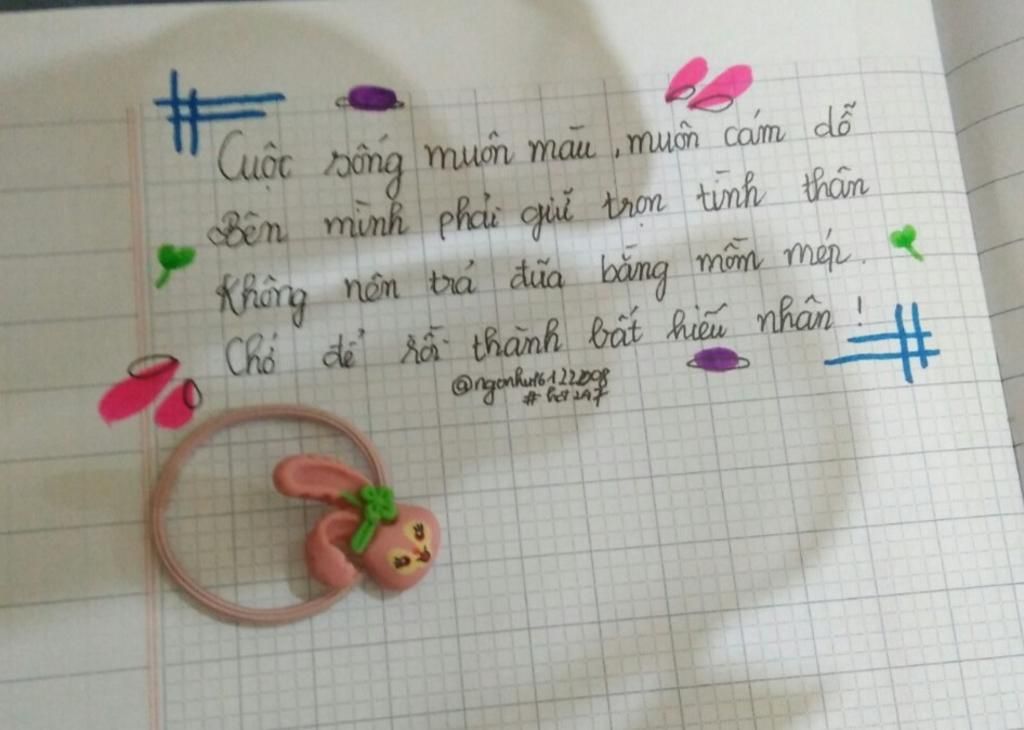 Cuộc sống muôn màu, muôn cám dỗ
Bên mình phải giữ trọn tinh thần
Không nên trả đũa bằng mồm mép.
Chớ để rồi thành bất hiếu nhân!